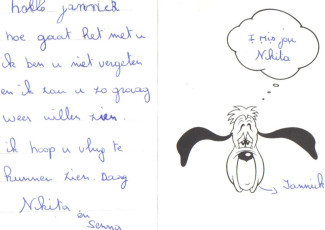 hallo jannick
hoe gaat het met u
ik ben u niet vergeten
en ik zou u zo graag
weer willen zien.
ik hoop u vlug te
kunnen zien. Daag
Nkita
en
Senna
I mis jou
Nkita
Jannick